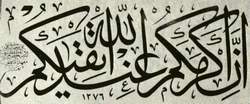 إِنَّ أَكْرَمَكُمْ عِنْدَ اللَّهِ أَتْقَاكُمْ
١٣٧٦